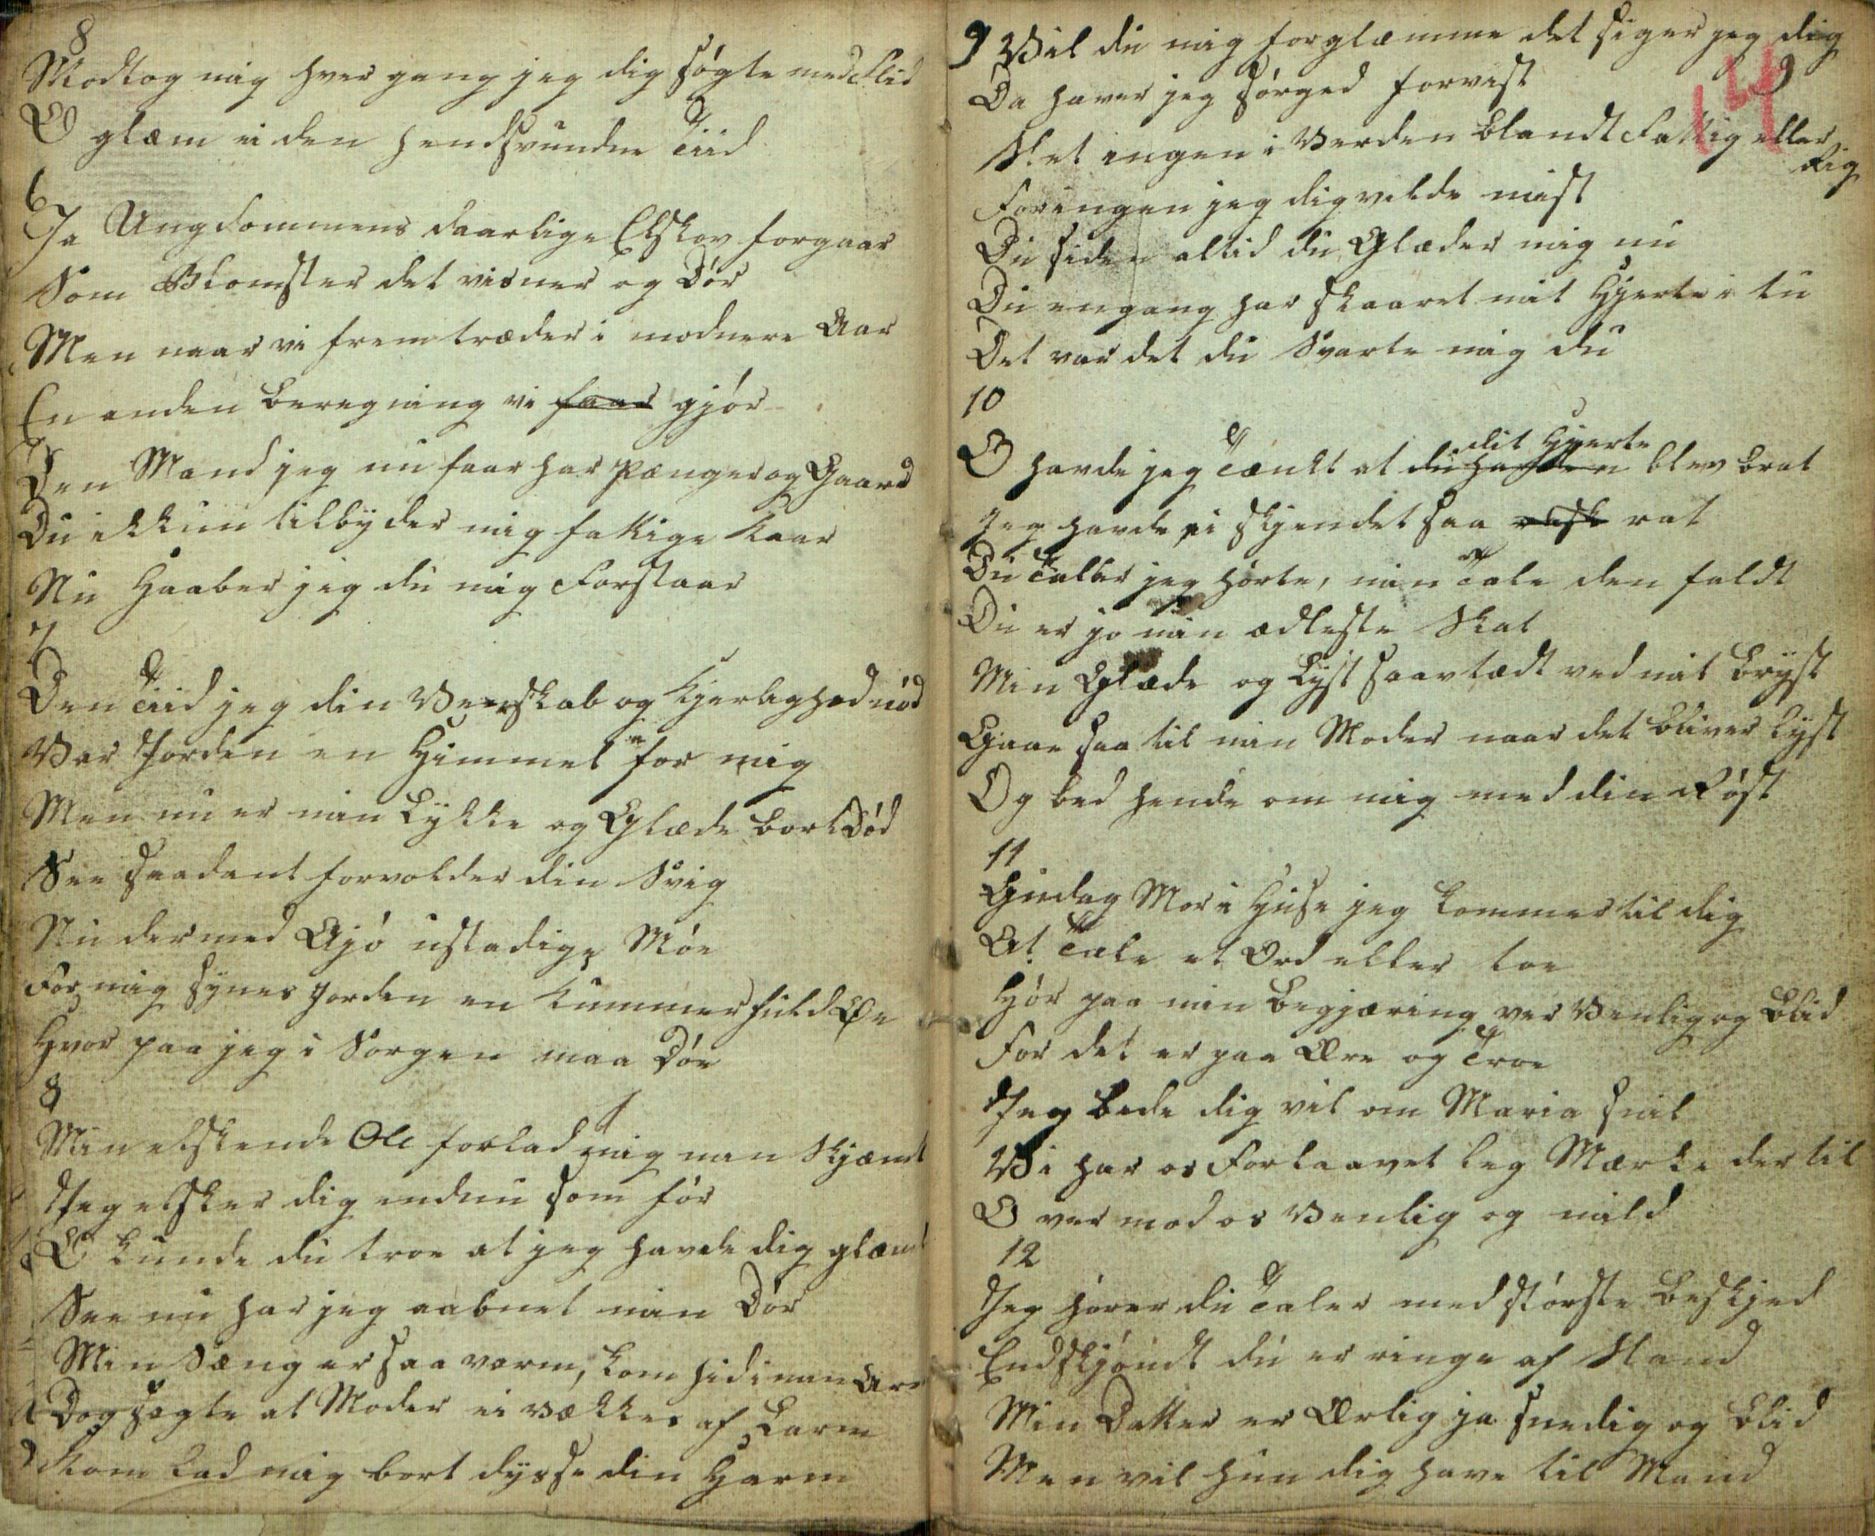 8
Modtog mig hver gang jeg dig søgte med Flid
O glem ei den hendsvundne Tiid
6
Ja Ungdommens daarlige Elskov forgaar
Som Blomster det visner og Dør
Men naar vi fremtræder i modnere Aar
En anden beregning vi faar gjør
Den Mand jeg nu faar har Pænger og Gaard
Du ikkun tilbyder mig fattige Kaar
Nu Haaber jeg du mig Forstaar
7
Den Tiid jeg din Venskab og Kjerlighed nød
Var Jorden en Himmel for mig
Men nu er min Lykke og Glæde bort Død
See saadant forvolder din Svig
Nu dermed Ajø ustadige Møe
For mig synes Jorden en Kummerfuld Øe
Hvor paa jeg i Sorgen maa Døe
8
Min elskende Ole forlad mig min Skjæmt
Jeg elsker dig endnu som før
O kunde du troe at jeg havde dig glæmt
See nu har jeg aabnet min Dør
Min Sæng er saa varm, kom hid i min Arm
Dog sagte at Moder ei vækkes af Larm
Kom lad mig bort dysse din Harm
14
9 Vil du mig forglæmme det siger jeg dig
Da haver jeg sørged forvist
Slet ingen i Verden blandt Fattig eller
Rig
For ingen jeg dig vilde mist
Du siden altid du Glæder mig nu
Du engang har skaaret mit Hjerte i tu
Det var det du Svarte mig du
10
O havde jeg Tænkt at du dit Hjerte blev brat
Jeg havde ei skjendet saa rat
Du Taler jeg hørte, min Tale den faldt
Du er jo min ædleste Skat
Min Glæde og Lyst saavtædt ved mit Bryst
Gaae saa til min Moder naar det bliver lyst
Og bed hende om mig med din Røst
11
Gudag Mor i Huse jeg kommer til dig
At Tale et Ord eller toe
Hør paa min begjæring ver Venlig og Blid
For det er paa Ære og Troe
Jeg bede dig vil om Maria snil
Vi har os Forlaavet leg Mærke der til
O ver mod os Venlig og mild
12
Jeg hører du Taler med største beskjed
Endskjøndt du er ringe af Stand
Min Datter er Ærlig ja snedig og Blid
Men vil hun dig have til Mand